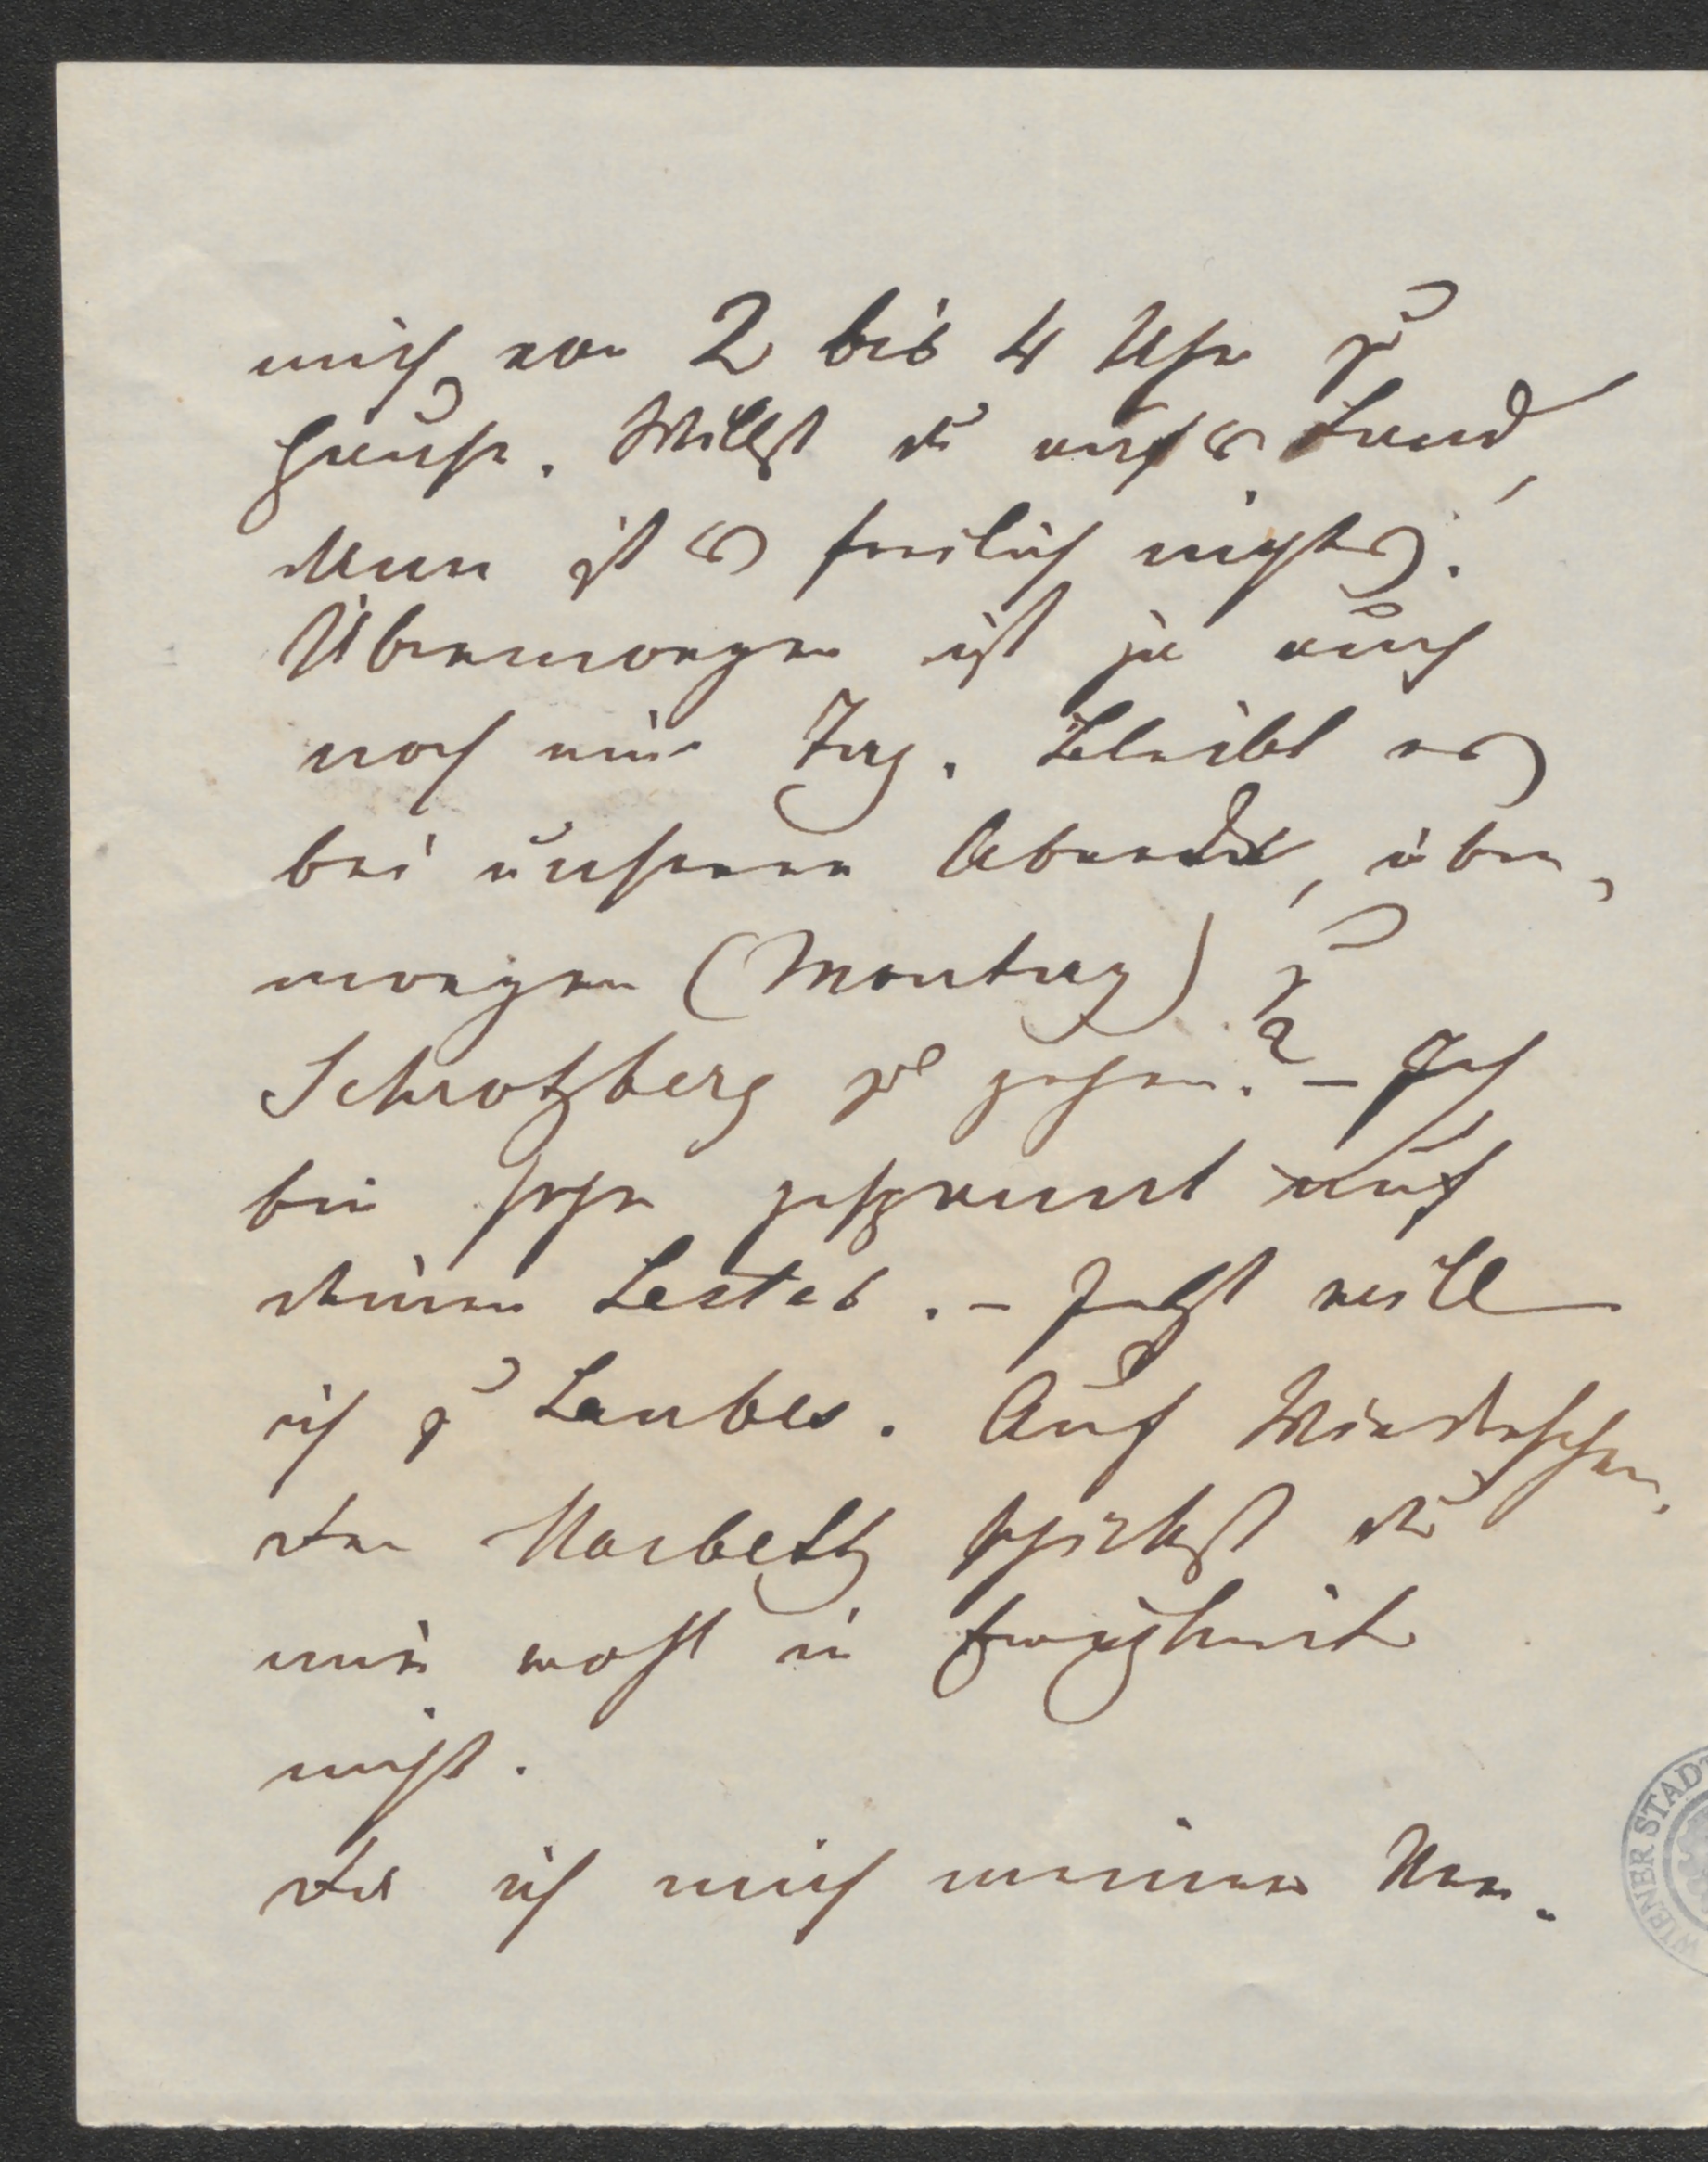 mich von 2 bis 4 Uhr zu
Hause. Willst du aufs Land,
dann ist es freilich nichts.
Übermorgen ist ja auch
noch ein Tag. Bleibt es
bei unserer Abrede, über-
morgen (Montag) zu
Schrotzberg zu gehen? – Ich
bin sehr gespannt auf
deinen Lester. – Jetzt will
ich zu Laubes. Auf Wiedersehen.
Den Macbeth schickst du
mir wohl in Ewigkeit
nicht.
Da ich mich meiner Ver-
WIENER STADT